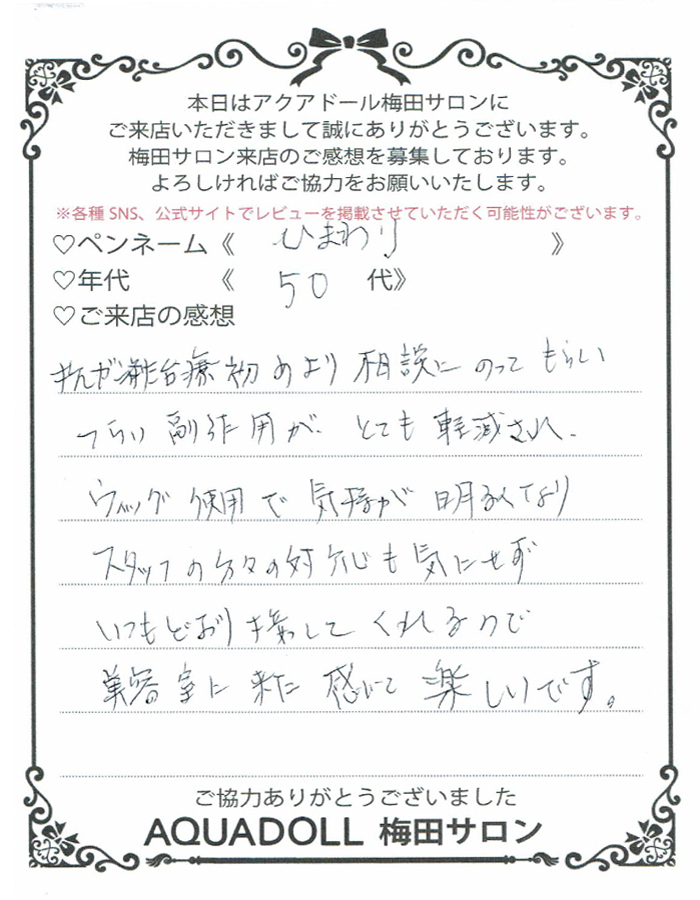 本日はアクアドール梅田サロンに
ご来店いただきまして誠にありがとうございます。
梅田サロン来店のご感想を募集しております。
よろしければご協力をお願いいたします。
※各種 SNS、公式サイトでレビューを掲載させていただく可能性がございます。
♡ペンネーム《 ひまわり 》
♡年代 《 50 代》
♡ご来店の感想
治療初めより相談にのってもらい
つらい副作用が、とても軽減され、
ウィッグ使用で気持が明るくなり
スタッフの方々の対応も気にせず
いつもどおり接してくれるので
美容室に来た感じで楽しいです。
ご協力ありがとうございました
AQUADOLL 梅田サロン